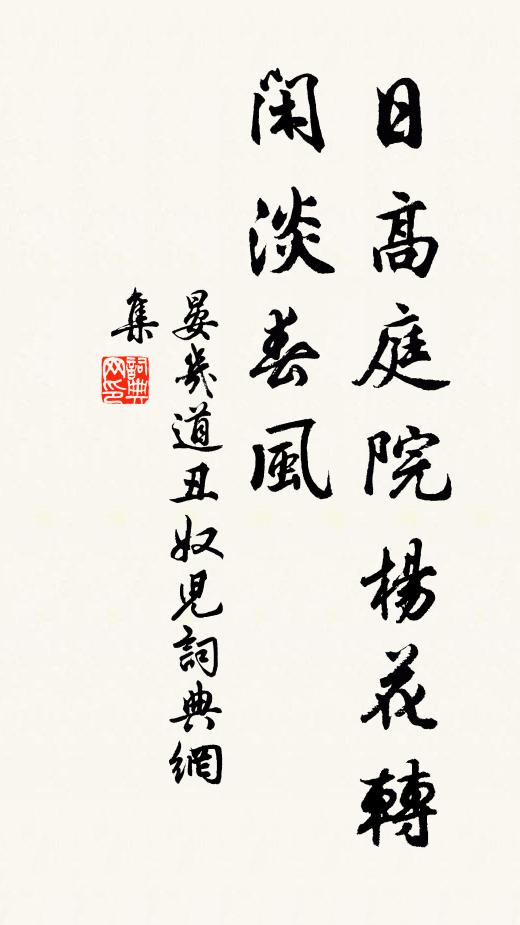 日高庭院楊花轉
閑淡春風
晏幾道丑奴兒詞典網
集
詞典
网印